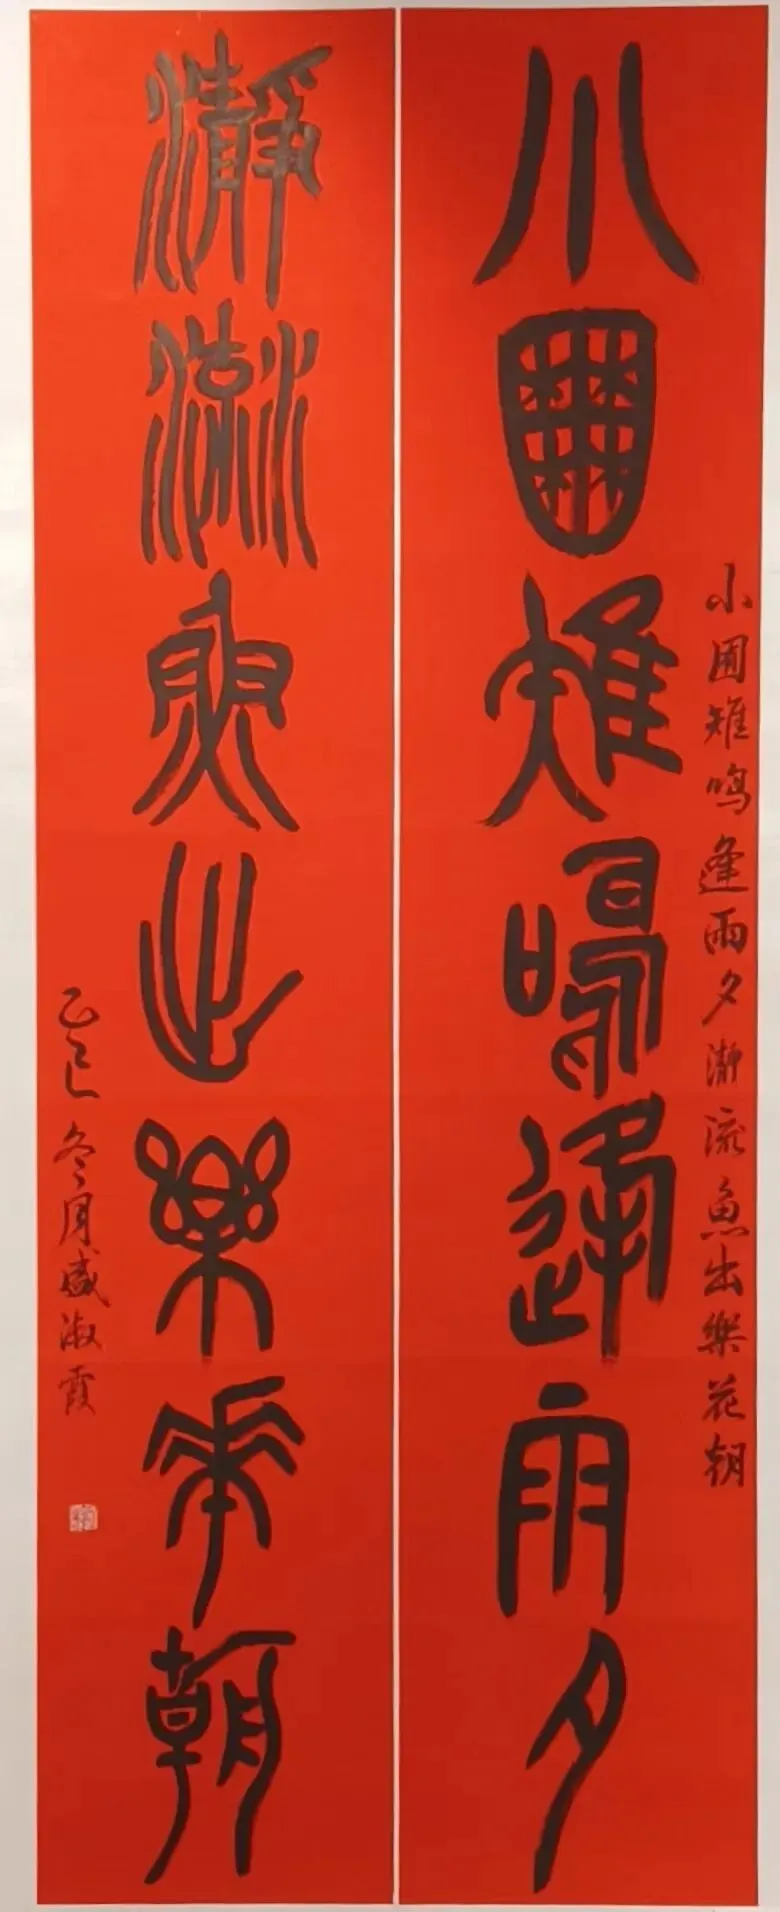 小囿雉鳴逢雨夕
瀞流魚出樂華朝
小囿雉鸣逢雨夕瀞流魚出樂花朝
乙巳冬月盛淑霞